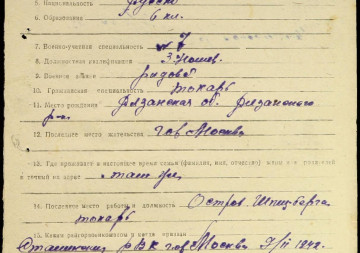 5. Национальность Русский
6. Образование 6 кл.
7. Военно-учетная специальность № 1
8. Должностная квалификация
9. Военное звание рядовой
10. Гражданская специальность токарь
11. Место рождения Рязанская об. Рязанского
р-н.
12. Последнее место жительства гор. Москва
13. Где проживает в настоящее время семья (фамилия, имя, отчество)
и точный их адрес
14. Последнее место работы и должность Остров Шпицберга
токарь
15. Каким райвоенкоматом и когда призван
РВК гор. Москва